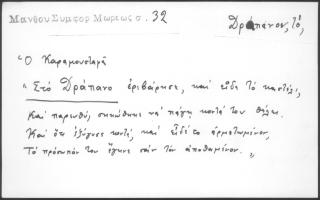 Μανθου Συμφορ Μωρεως σ. 32
Δράπανον, τό,
Ὁ Καραμουσταφᾶ
"Στό Δράπανο ἐριβάρησε, καί εἶδε τό καστέλι,
Καί παρευθύ, σηκώθηκε νά πάγῃ κοντά του θέλει.
Καί ὅτι ἐζύγωσε κοντά, καί εἶδε το ἀρματωμένον,
Τό πρόσωπόν του ἔγινε σάν τόν ἀποθαμένον."